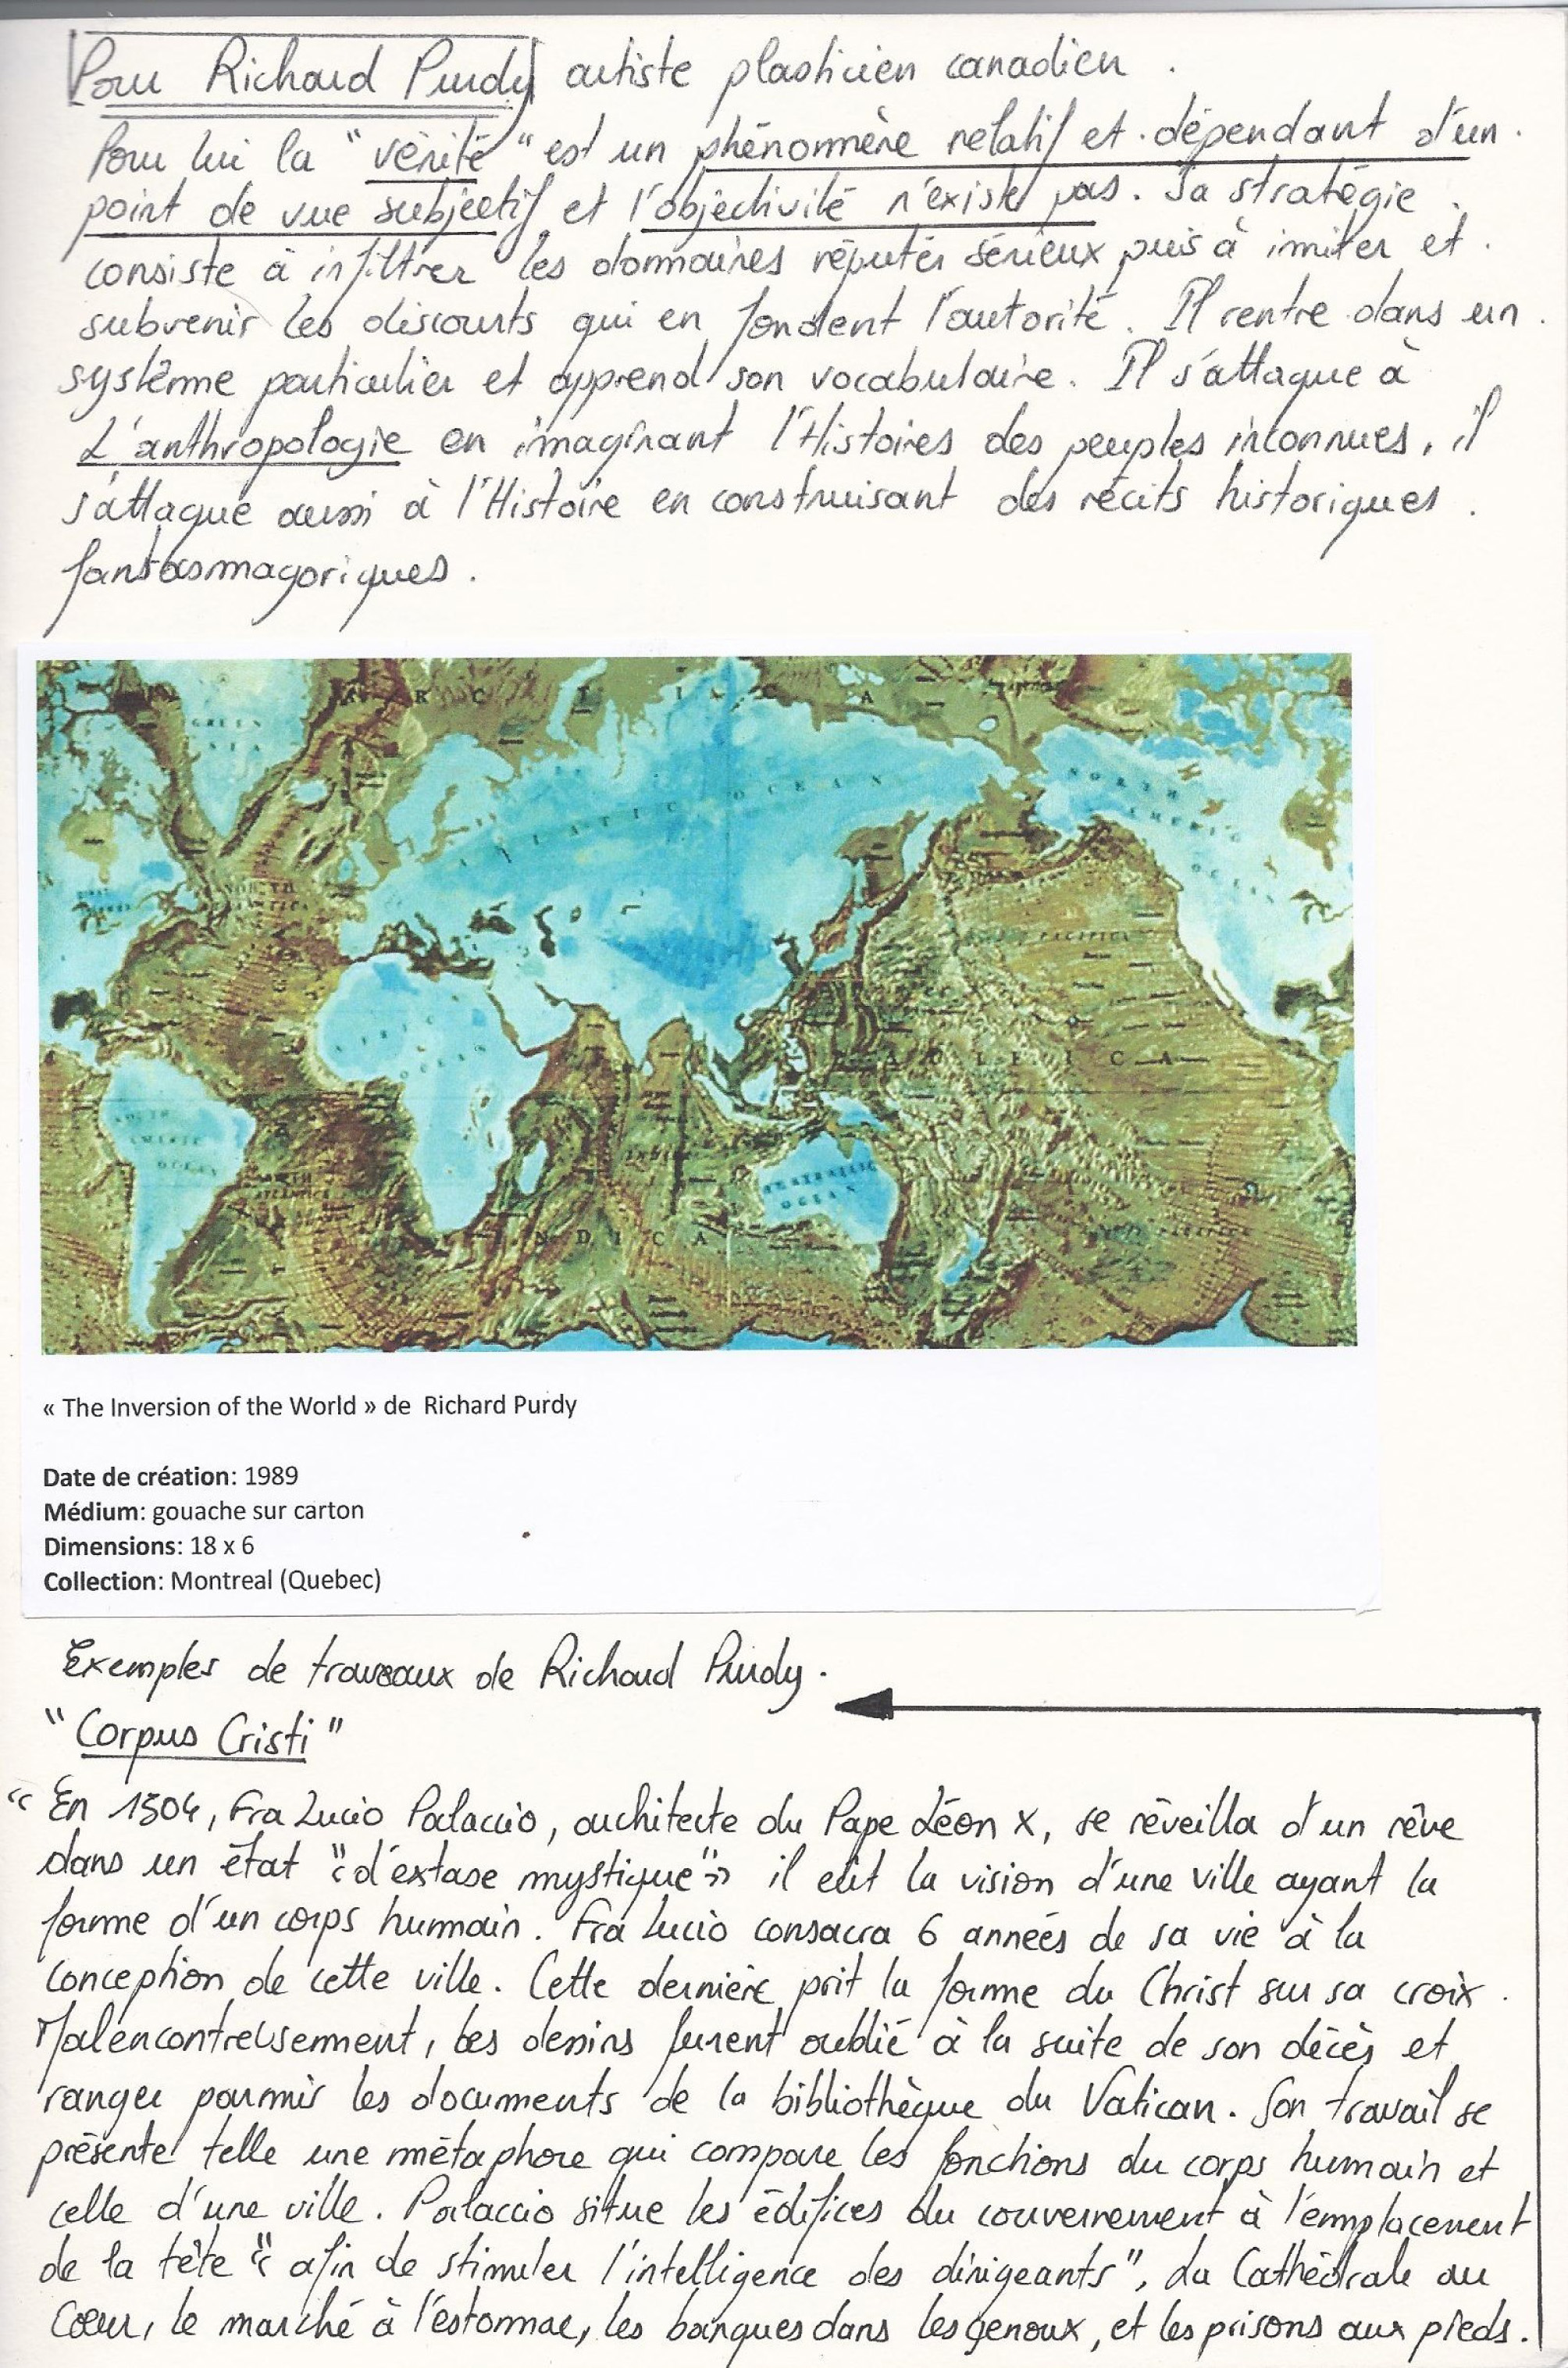 Pour Richard Purdy artiste plasticien canadien.
Pour lui la "vérité" est un phénomène relatif et dépendant d'un
point de vue subjectif et l'objectivité n'existe pas. Sa stratégie
consiste à infiltrer les domaines réputés sérieux puis à imiter et
subvenir les discourts qui en fondent l'autorité. Il rentre dans un
système particulier et apprend son vocabulaire. Il s'attaque à
L'anthropologie en imaginant l'Histoires des peuples inconnues, il
s'attaque aussi à l'Histoire en construisant des récits historiques
fantasmagoriques.
A R C T I C A
GREEN SEA
ASIATIC OCEAN
NORTH AMERIC OCEAN
NORTH ATLANTICA
PACIFICA
AFRIC OCEAN
SOUTH AMERIC OCEAN
AUSTRALIC OCEAN
INDICA
« The Inversion of the World » de Richard Purdy
Date de création: 1989
Médium: gouache sur carton
Dimensions: 18 x 6
Collection: Montreal (Quebec)
Exemples de travaux de Richard Purdy.
"Corpus Cristi"
"En 1504, Fra Lucio Palaccio, architecte du Pape Léon X, se réveilla d'un rêve
dans un état "d'éxtase mystique" il eût la vision d'une ville ayant la
forme d'un corps humain. Fra Lucio consacra 6 années de sa vie à la
conception de cette ville. Cette dernière prit la forme du Christ sur sa croix.
Malencontreusement, les dessins furent oublié à la suite de son décès et
ranger parmis les documents de la bibliothèque du Vatican. Son travail se
présente telle une métaphore qui compare les fonctions du corps humain et
celle d'une ville. Palaccio situe les édifices du gouvernement à l'emplacement
de la tête " afin de stimuler l'intelligence des dirigeants", la Cathédrale au
Cœur, le marché à l'estomac, les banques dans les genoux, et les prisons aux pieds.